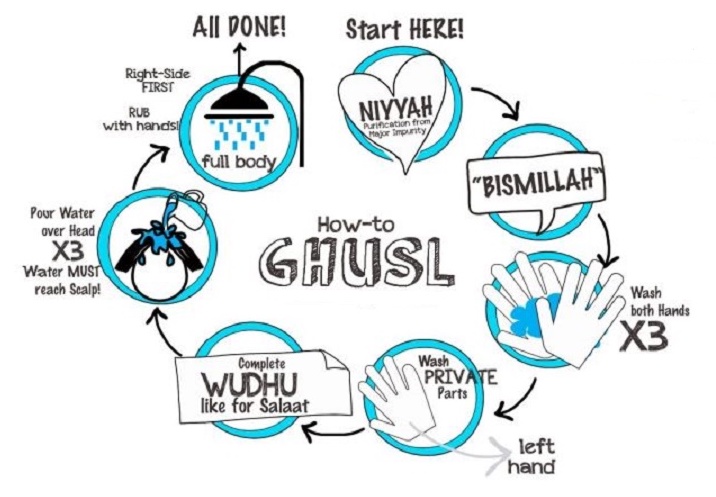 Start HERE!
NIYYAH
Purification from
Major Impurity
"BISMILLAH"
Wash
both Hands
X3
Wash
PRIVATE
Parts
left
hand
Complete
WUDHU
like for Salaat
Pour Water
over Head
X3
Water MUST
reach Scalp!
Right-Side
FIRST
RUB
with hands!
full body
All DONE!
How-to
GHUSL